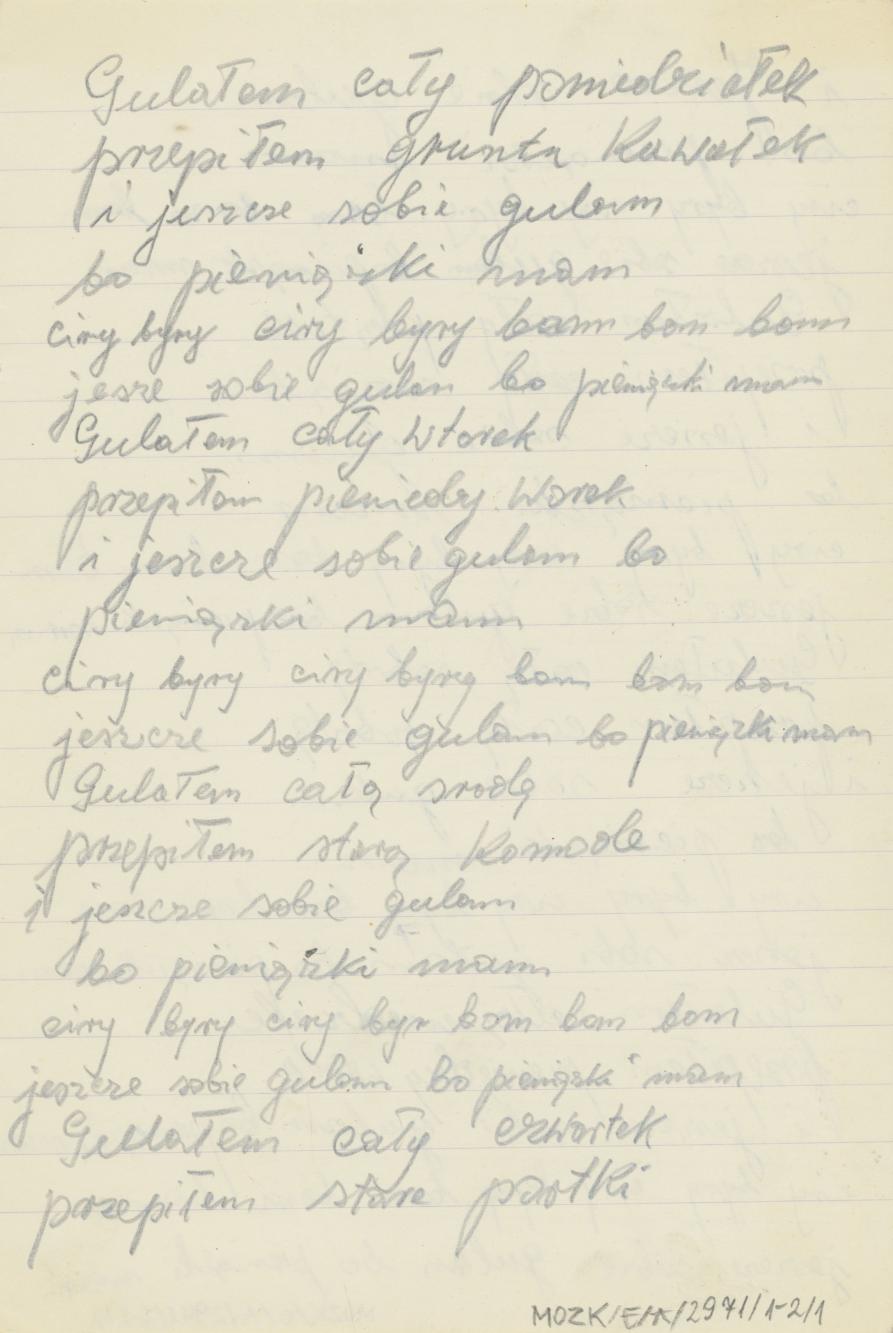 Gulałem cały poniedziałek
przepiłem gruntu Kawałek
i jeszcze sobie gulam
bo pieniążki mam
ciry byry ciry byry bam bam bam
jesze sobie gulam bo pieniążki mam
Gulałem cały wtorek
przepiłam pieniedzy worek
i jeszcze sobie gulam bo
pieniązki mam
ciry byry ciry byry bam bam bam
jeszcze sobie gulam bo pieniązki mam
Gulałem całą srodę
przepiłem starą Komode
i jeszcze sobie gulam
bo pieniążki mam
ciry byry ciry byr bam bam bam
jeszcze sobie gulam bo pieniązki mam
Gulałem cały czwartek
przepiłem stare portki
MOZK/E/A/2971/1-2/1